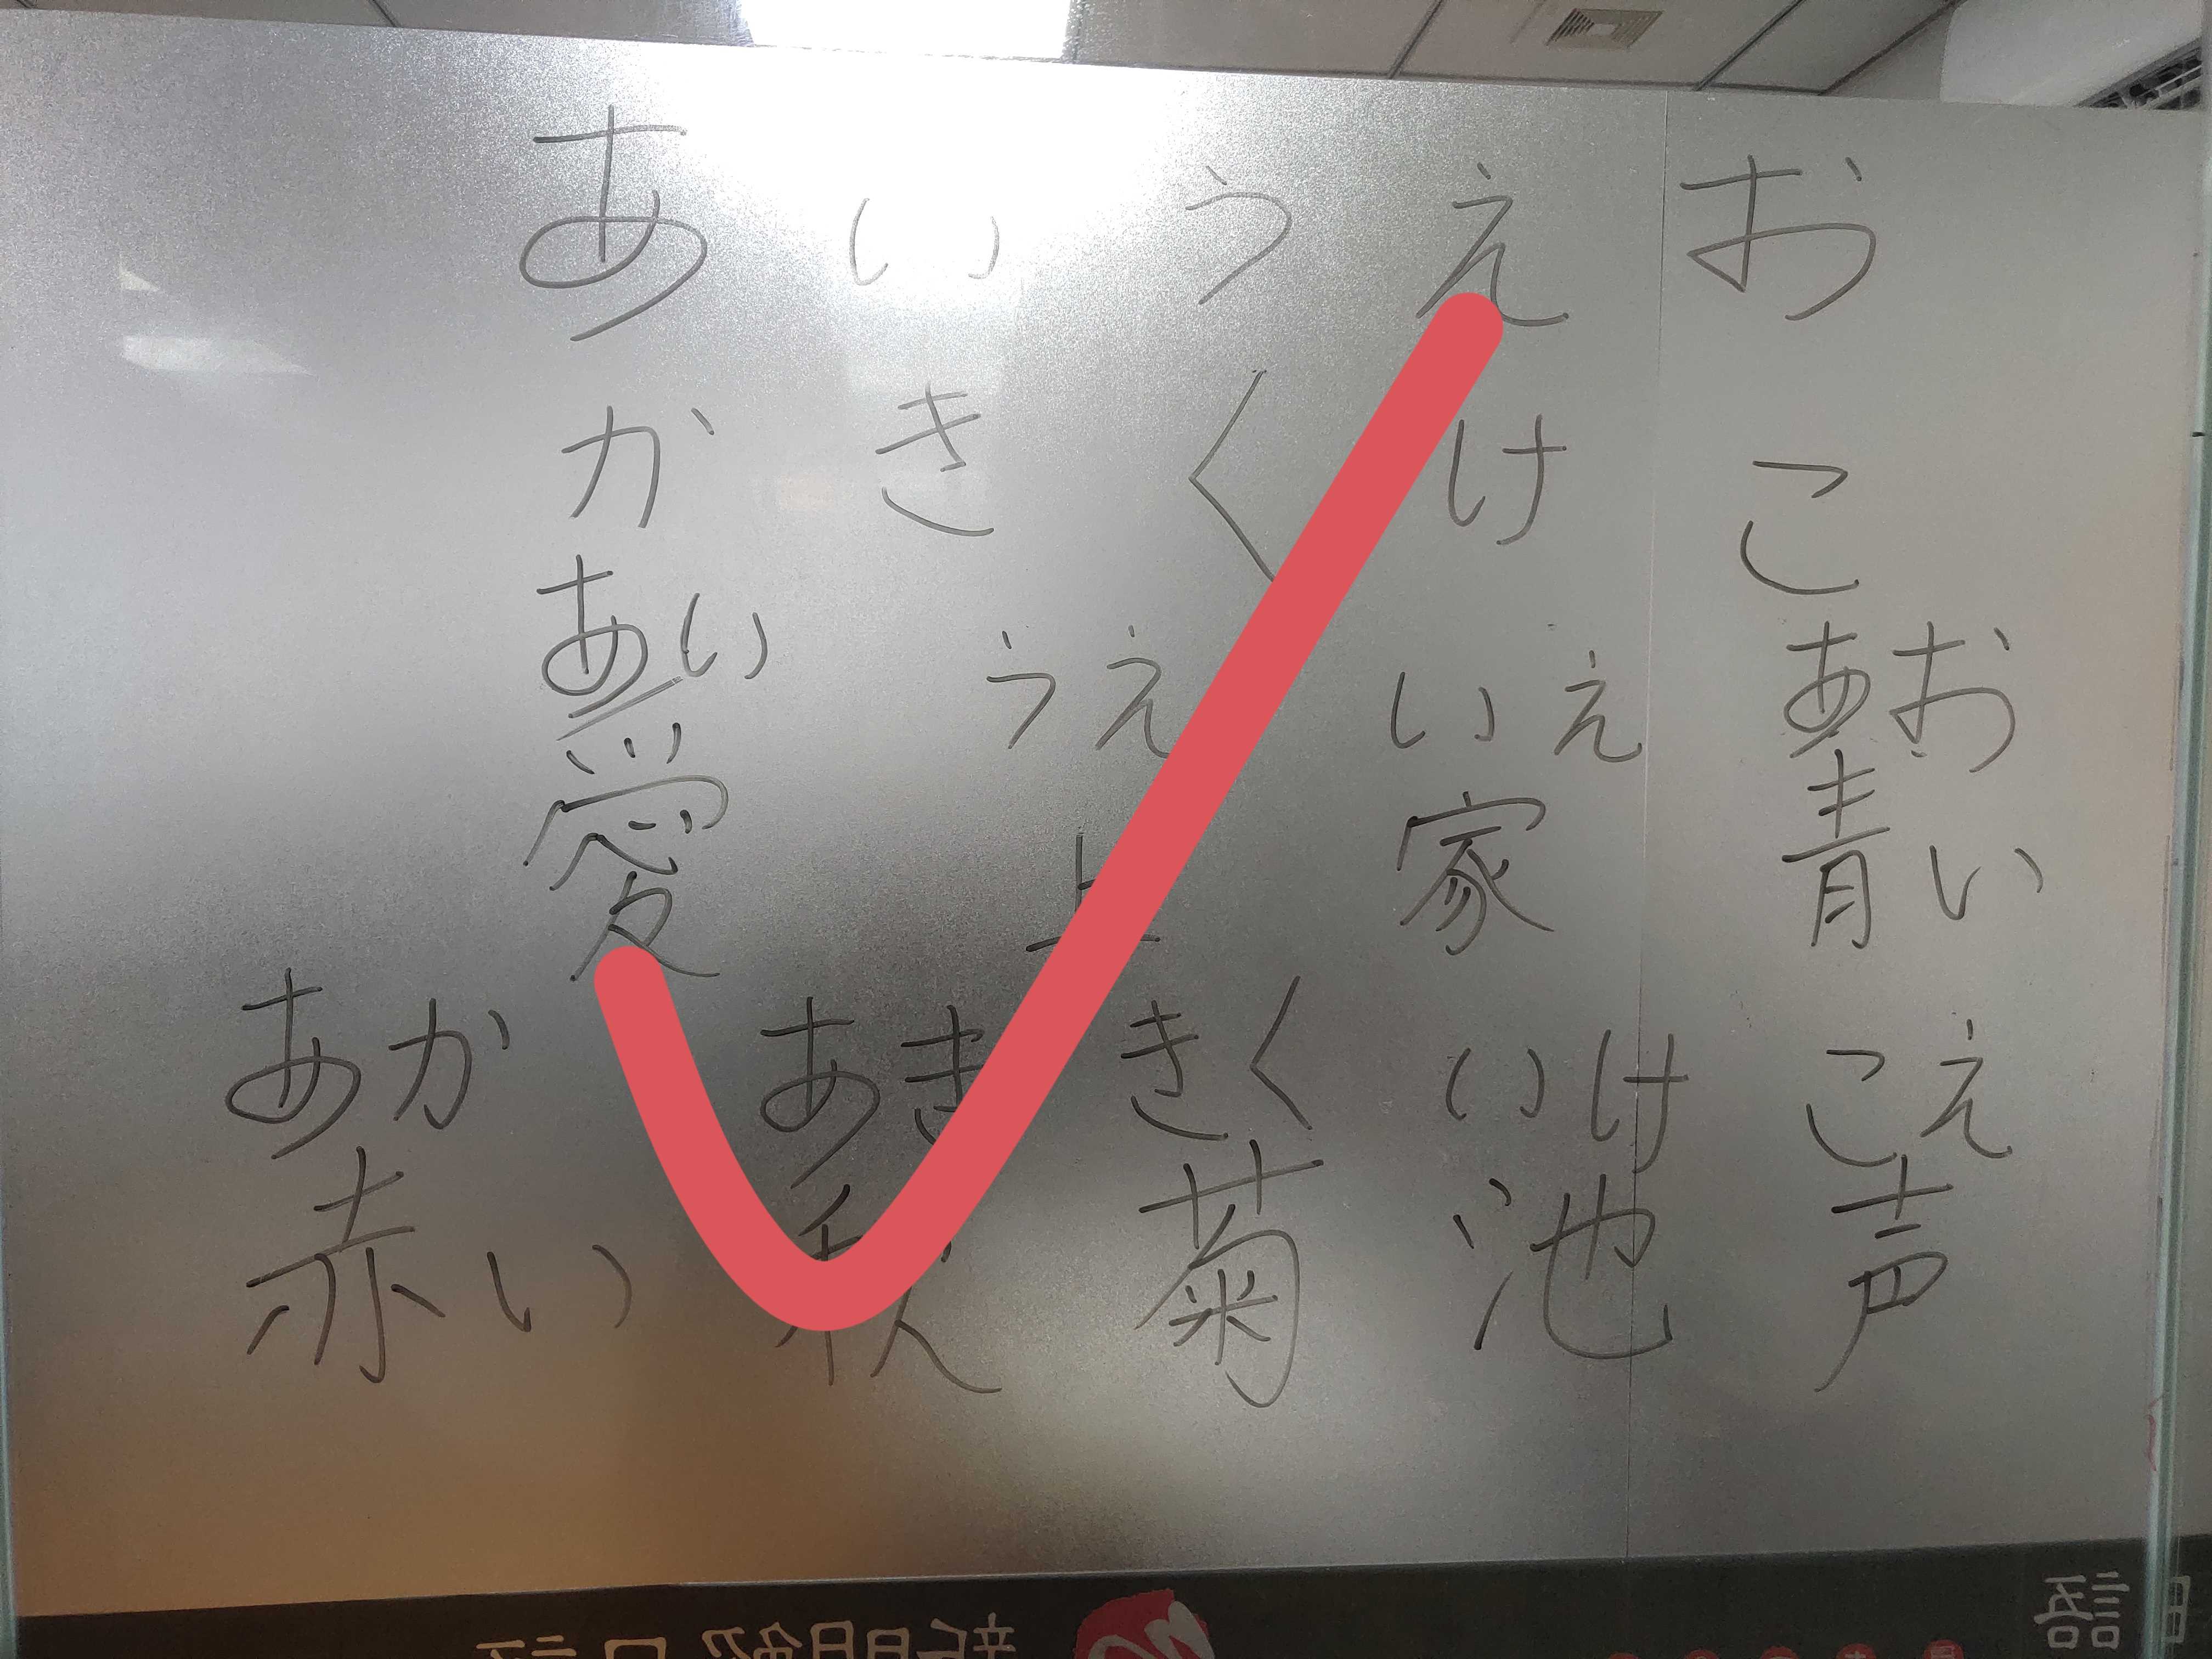 あ い う え お
か き く け こ
あい うえ いえ あお
愛 上 家 青い
あか あき きく いけ こえ
赤い 秋 菊 池 声
語